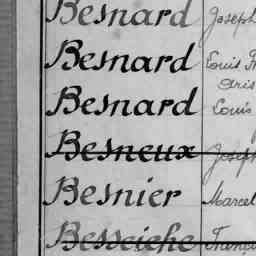 Besnard Joseph
Besnard Louis
Aris
Besnard Louis
Besneux Joseph
Besnier Marcel
Besseiche